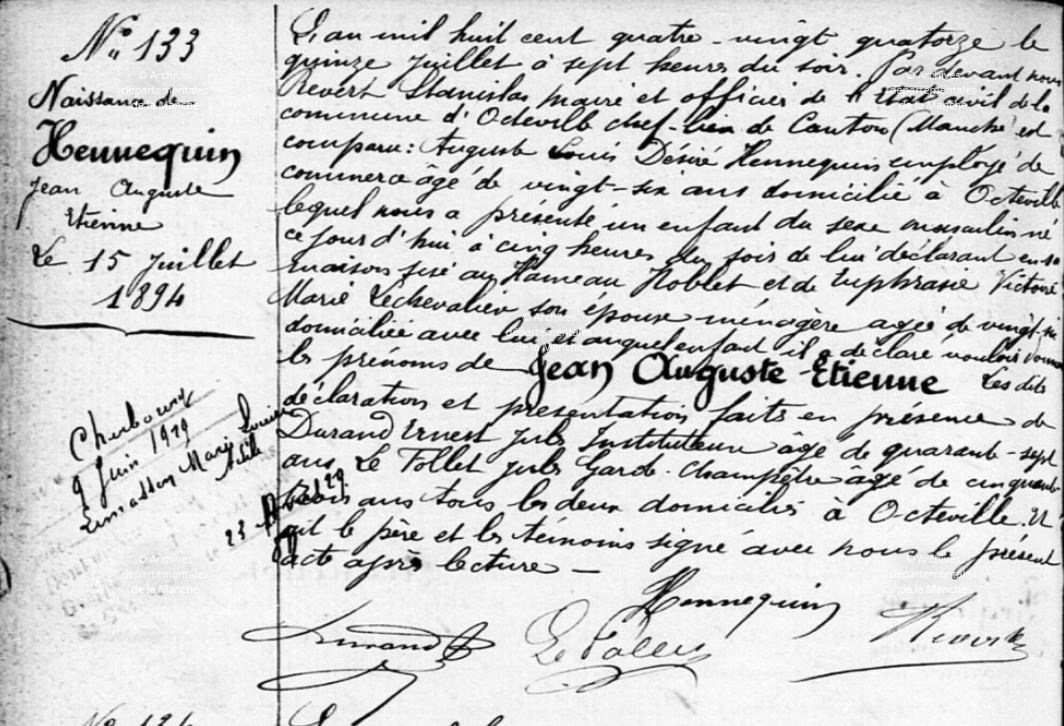 No 133
Naissance de
Hennequin
Jean Auguste
Etienne
Le 15 juillet
1894
L'an mil huit cent quatre-vingt quatorze le
quinze juillet à sept heures du soir. Par devant nous
Revert Stanislas maire et officier de l'état civil de la
commune d'Octeville chef-lieu de Canton (Manche) est
comparu: Auguste Louis Désiré Hennequin employé de
commerce âgé de vingt-six ans domicilié à Octeville
lequel nous a présenté un enfant du sexe masculin né
ce jour d'hui à cinq heures du soir de lui déclarant en sa
maison sise au Hameau Noblet et de Euphrasie Victoire
Marie Lechevalier son épouse ménagère agée de vingt-six
domiciliée avec lui et auquel enfant il a déclaré vouloir donner
les prénoms de Jean Auguste Etienne Les dits
déclaration et présentation faits en présence de
Durand Ernest Jules Instituteur âgé de quarante-sept
ans Le Tollet Jules Garde-champêtre âgé de cinquante
trois ans tous les deux domiciliés à Octeville. Et
ont le père et les témoins signé avec nous le présent
acte après lecture —
Cherbourg
9 Juin 1919
Marie Louise
23
29
Hennequin
Durand
Le Tollet
Revert
© Archives
départementales
de la Manche
© Archives
départementales
de la Manche
© Archives
départementales
de la Manche
© Archives
départementales
de la Manche
© Archives
départementales
de la Manche